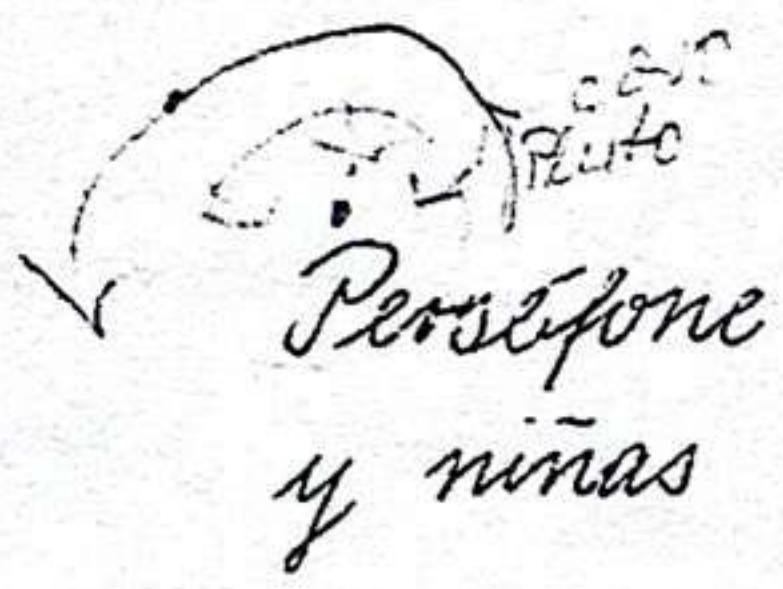 Pluto
Perséfone
y niñas